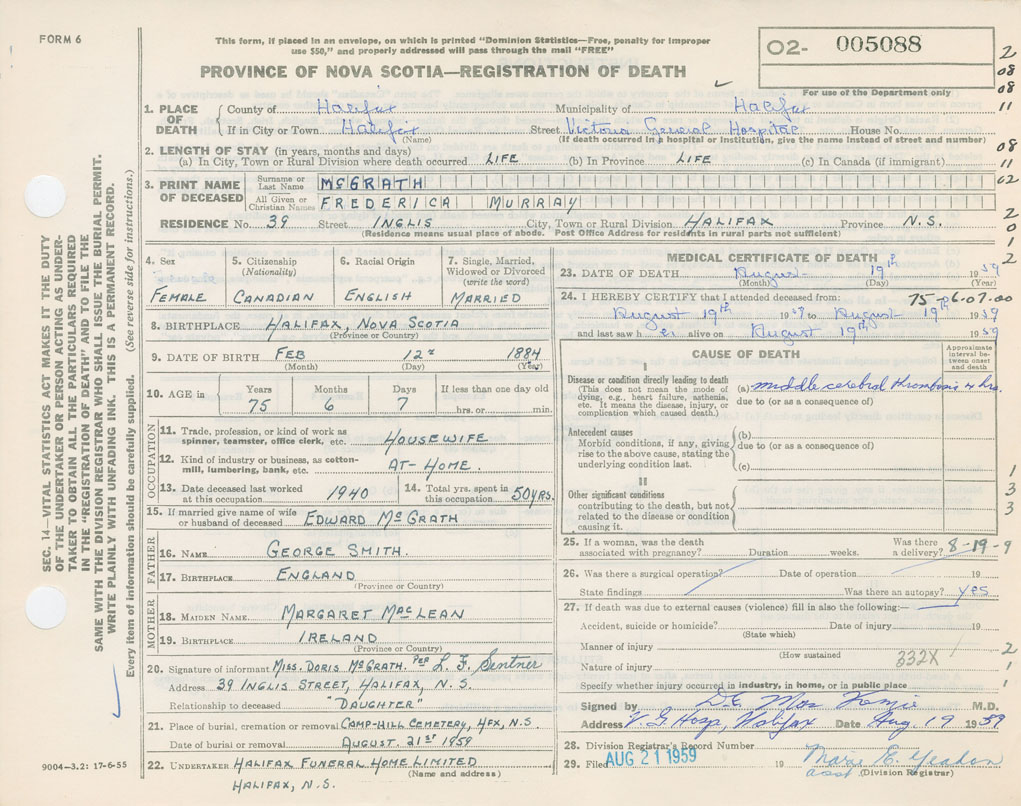 FORM 6
This form, if placed in an envelope, on which is printed "Dominion Statistics—Free, penalty for improper
use $50," and properly addressed will pass through the mail "FREE"
PROVINCE OF NOVA SCOTIA—REGISTRATION OF DEATH
O2- 005088
For use of the Department only
2
08
08
11
08
11
02
2
0
1
2
1. PLACE OF DEATH
County of Halifax Municipality of Halifax
If in City or Town Halifax Street Victoria General Hospital House No.
(Name) (If death occurred in a hospital or institution, give the name instead of street and number)
2. LENGTH OF STAY (in years, months and days)
(a) In City, Town or Rural Division where death occurred LIFE (b) In Province LIFE (c) In Canada (if immigrant)
3. PRINT NAME OF DECEASED
Surname or Last Name McGRATH
All Given or Christian Names FREDERICA MURRAY
RESIDENCE No. 39 Street INGLIS City, Town or Rural Division HALIFAX Province N.S.
(Residence means usual place of abode. Post Office Address for residents in rural parts not sufficient)
4. Sex
FEMALE
5. Citizenship
(Nationality)
CANADIAN
6. Racial Origin
ENGLISH
7. Single, Married,
Widowed or Divorced
(write the word)
MARRIED
8. BIRTHPLACE HALIFAX, NOVA SCOTIA
(Province or Country)
9. DATE OF BIRTH FEB 12 1884
(Month) (Day) (Year)
10. AGE in
Years 75
Months 6
Days 7
If less than one day old
hrs. or min.
OCCUPATION
11. Trade, profession, or kind of work as
spinner, teamster, office clerk, etc. HOUSEWIFE
12. Kind of industry or business, as cotton-
mill, lumbering, bank, etc. AT-HOME.
13. Date deceased last worked
at this occupation 1940
14. Total yrs. spent in
this occupation 50 YRS.
15. If married give name of wife
or husband of deceased EDWARD McGRATH
FATHER
16. NAME GEORGE SMITH.
17. BIRTHPLACE ENGLAND
(Province or Country)
MOTHER
18. MAIDEN NAME MARGARET MacLEAN
19. BIRTHPLACE IRELAND
(Province or Country)
20. Signature of informant MISS. DORIS McGRATH. PER L. F. Sentner
Address 39 INGLIS STREET, HALIFAX, N.S.
Relationship to deceased "DAUGHTER"
21. Place of burial, cremation or removal CAMP-HILL CEMETERY, HFX, N.S.
Date of burial or removal AUGUST. 21ST 1959
22. UNDERTAKER HALIFAX FUNERAL HOME LIMITED
(Name and address)
HALIFAX, N.S.
MEDICAL CERTIFICATE OF DEATH
23. DATE OF DEATH August 19th 1959
(Month) (Day) (Year)
24. I HEREBY CERTIFY that I attended deceased from: 75-06-07-00
August 19th 1959 to August 19th 1959
and last saw h er alive on August 19th 1959
CAUSE OF DEATH
Approximate
interval be-
tween onset
and death
I
Disease or condition directly leading to death
(This does not mean the mode of
dying, e.g., heart failure, asthenia,
etc. It means the disease, injury, or
complication which caused death.)
(a) middle cerebral thrombosis 4 hrs.
due to (or as a consequence of)
Antecedent causes
Morbid conditions, if any, giving
rise to the above cause, stating the
underlying condition last.
(b)
due to (or as a consequence of)
(c)
II
Other significant conditions
contributing to the death, but not
related to the disease or condition
causing it.
1
3
3
25. If a woman, was the death
associated with pregnancy? Duration weeks. Was there
a delivery? 8-19-9
26. Was there a surgical operation? Date of operation 19
State findings Was there an autopsy? yes
27. If death was due to external causes (violence) fill in also the following:—
Accident, suicide or homicide? Date of injury 19
(State which)
Manner of injury
(How sustained
332X
Nature of injury
2
1
Specify whether injury occurred in industry, in home, or in public place
1
Signed by M.D.
Address V. G. Hosp, Halifax Date Aug. 19 1959
28. Division Registrar's Record Number
29. Filed AUG 21 1959 19 Marie E. Yeadon
asst (Division Registrar)
SEC. 14—VITAL STATISTICS ACT MAKES IT THE DUTY
OF THE UNDERTAKER OR PERSON ACTING AS UNDER-
TAKER TO OBTAIN ALL THE PARTICULARS REQUIRED
IN THE "REGISTRATION OF DEATH" AND FILE THE
SAME WITH THE DIVISION REGISTRAR WHO SHALL ISSUE THE BURIAL PERMIT.
WRITE PLAINLY WITH UNFADING INK. THIS IS A PERMANENT RECORD.
Every item of information should be carefully supplied. (See reverse side for instructions.)
9004-3.2: 17-6-55